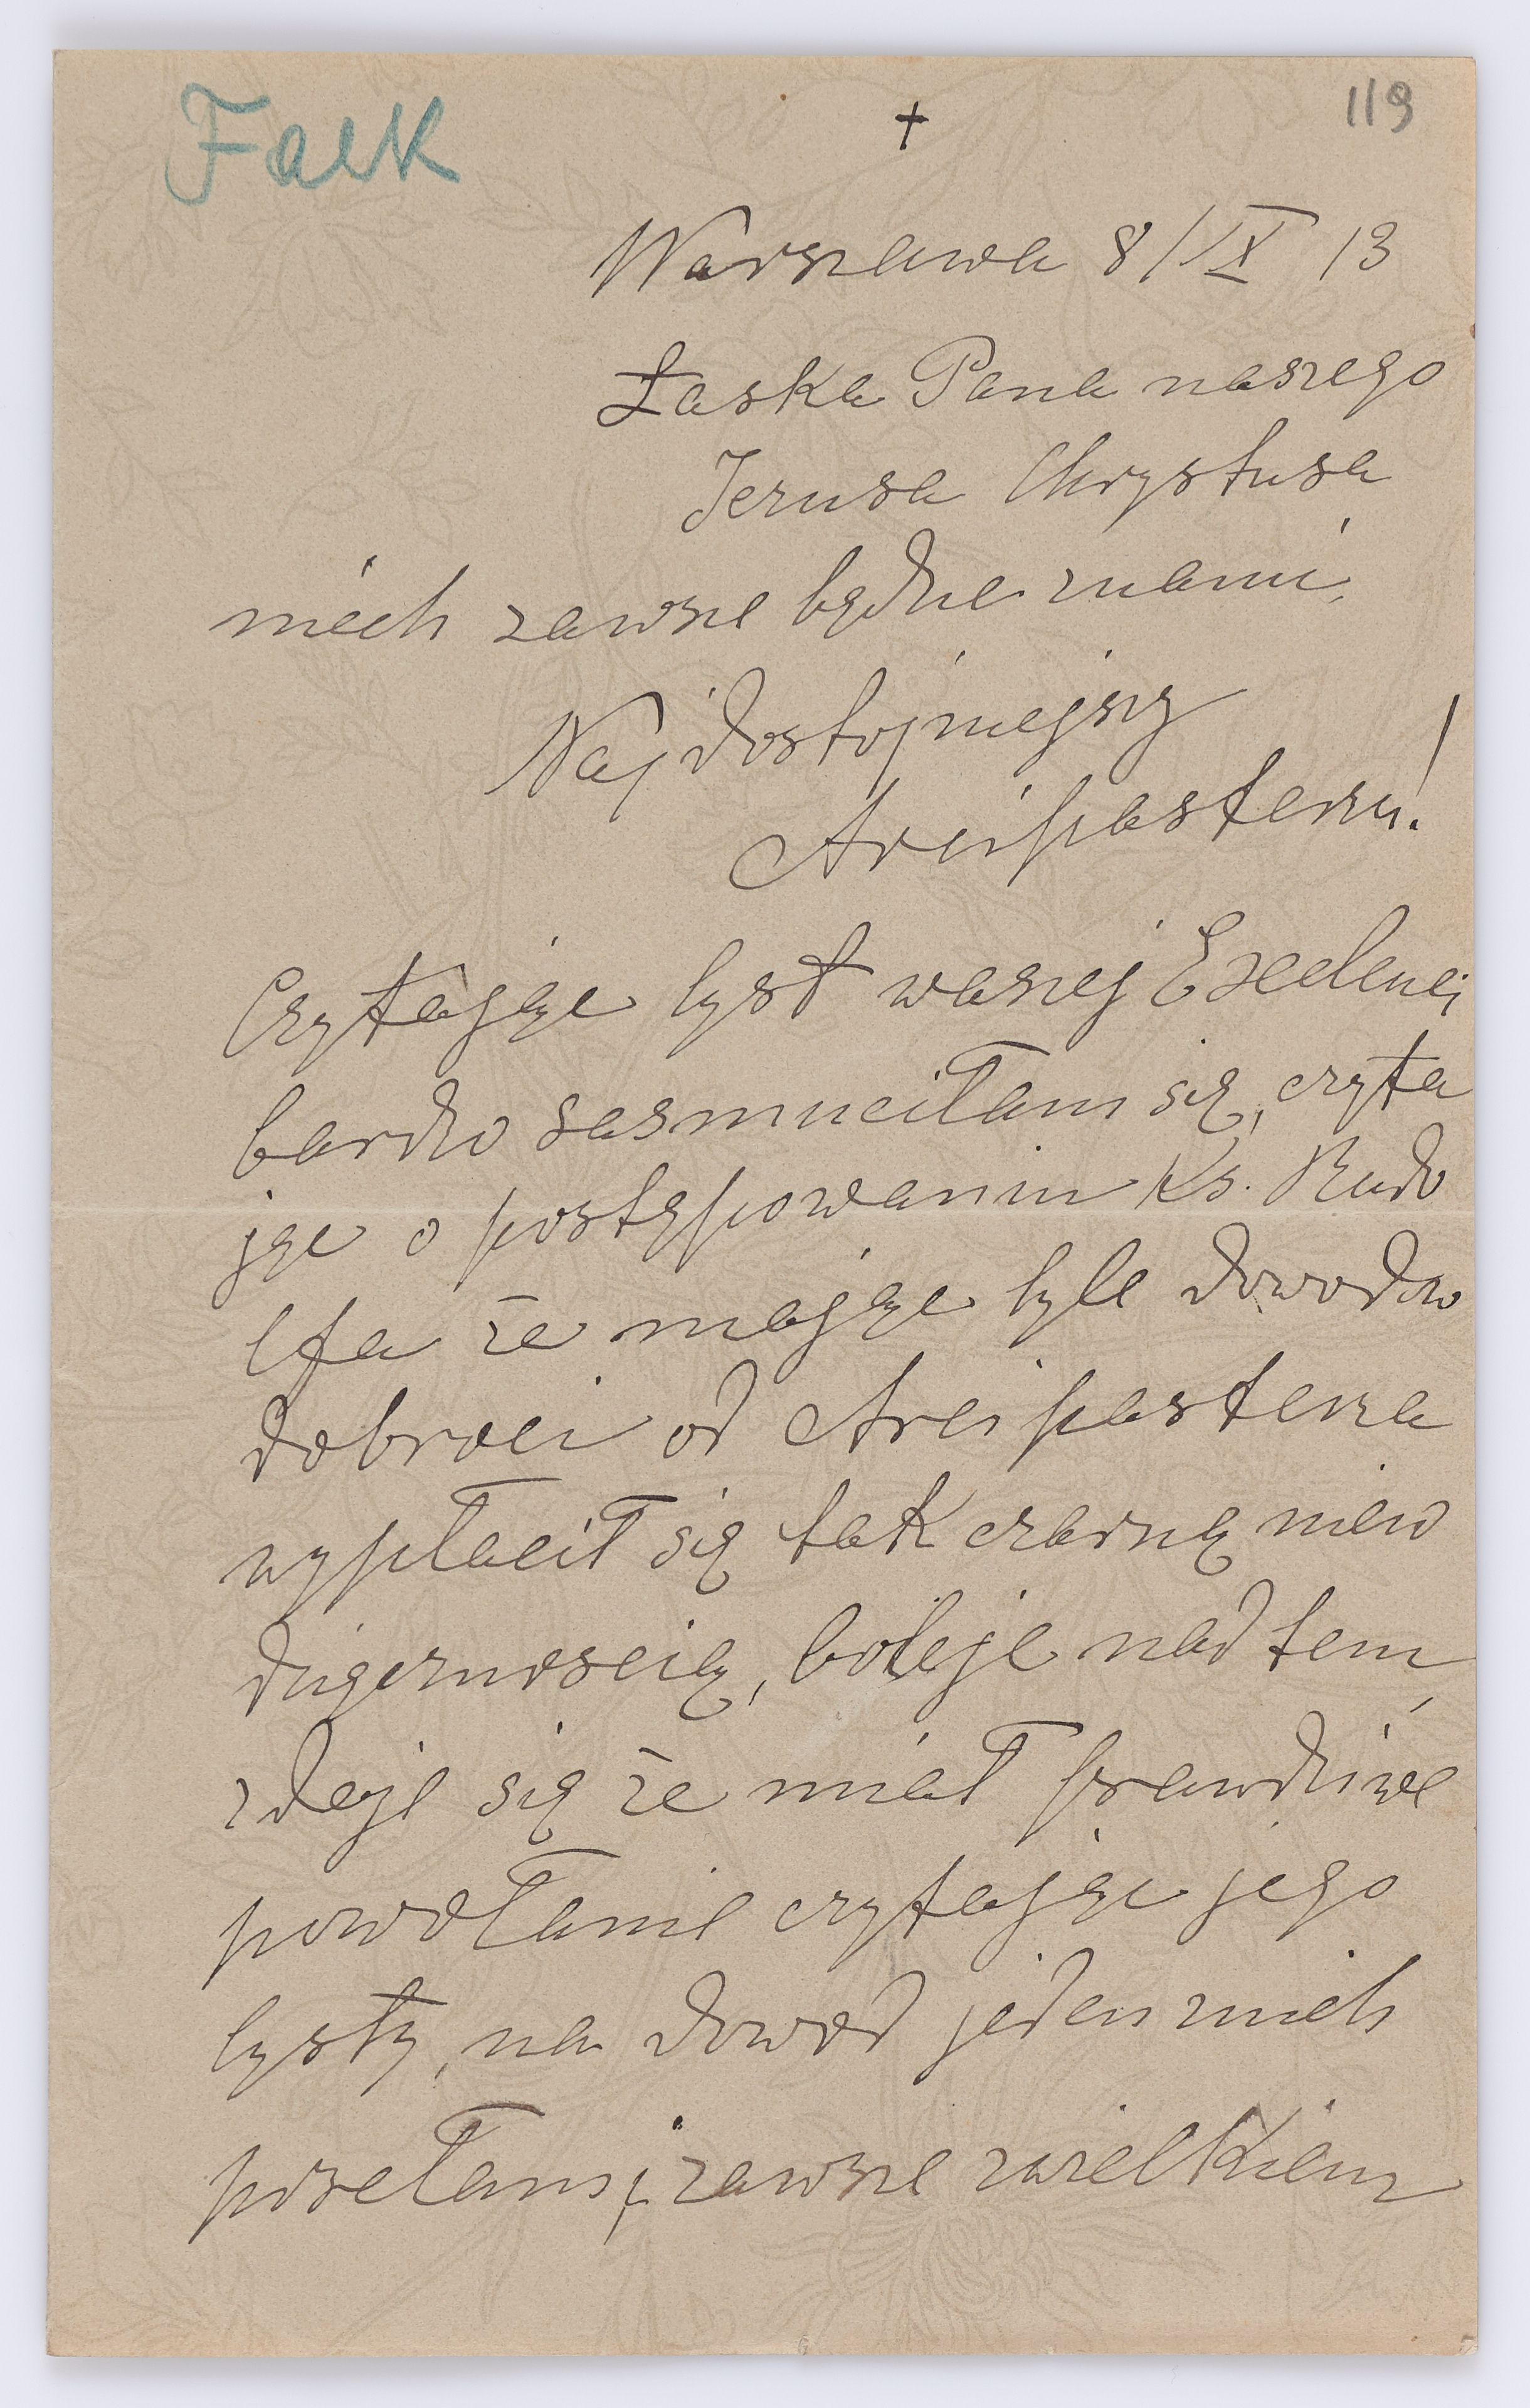 Falk
+
119
Warszawa 8/IX 13
Łaska Pana naszego
Jezusa Chrystusa
niech zawsze będzie znami,
Najdostojniejszy
Arcipasterzu!
Czytając lyst waszej Excelencj
bardzo sasmuciłam się, czyta
jąc o postępowaniu Ks. Rudo
lfa że mając tyle dowodow
dobroci od Arcipasterza
wypłacił się tak czarną niew
dzięcznoscią, boleje nad tem,
zdaje się że miał prawdziwe
powołanie czytając jego
lysty, na dowod jeden znich
poszełam, zawsze zwielkiem